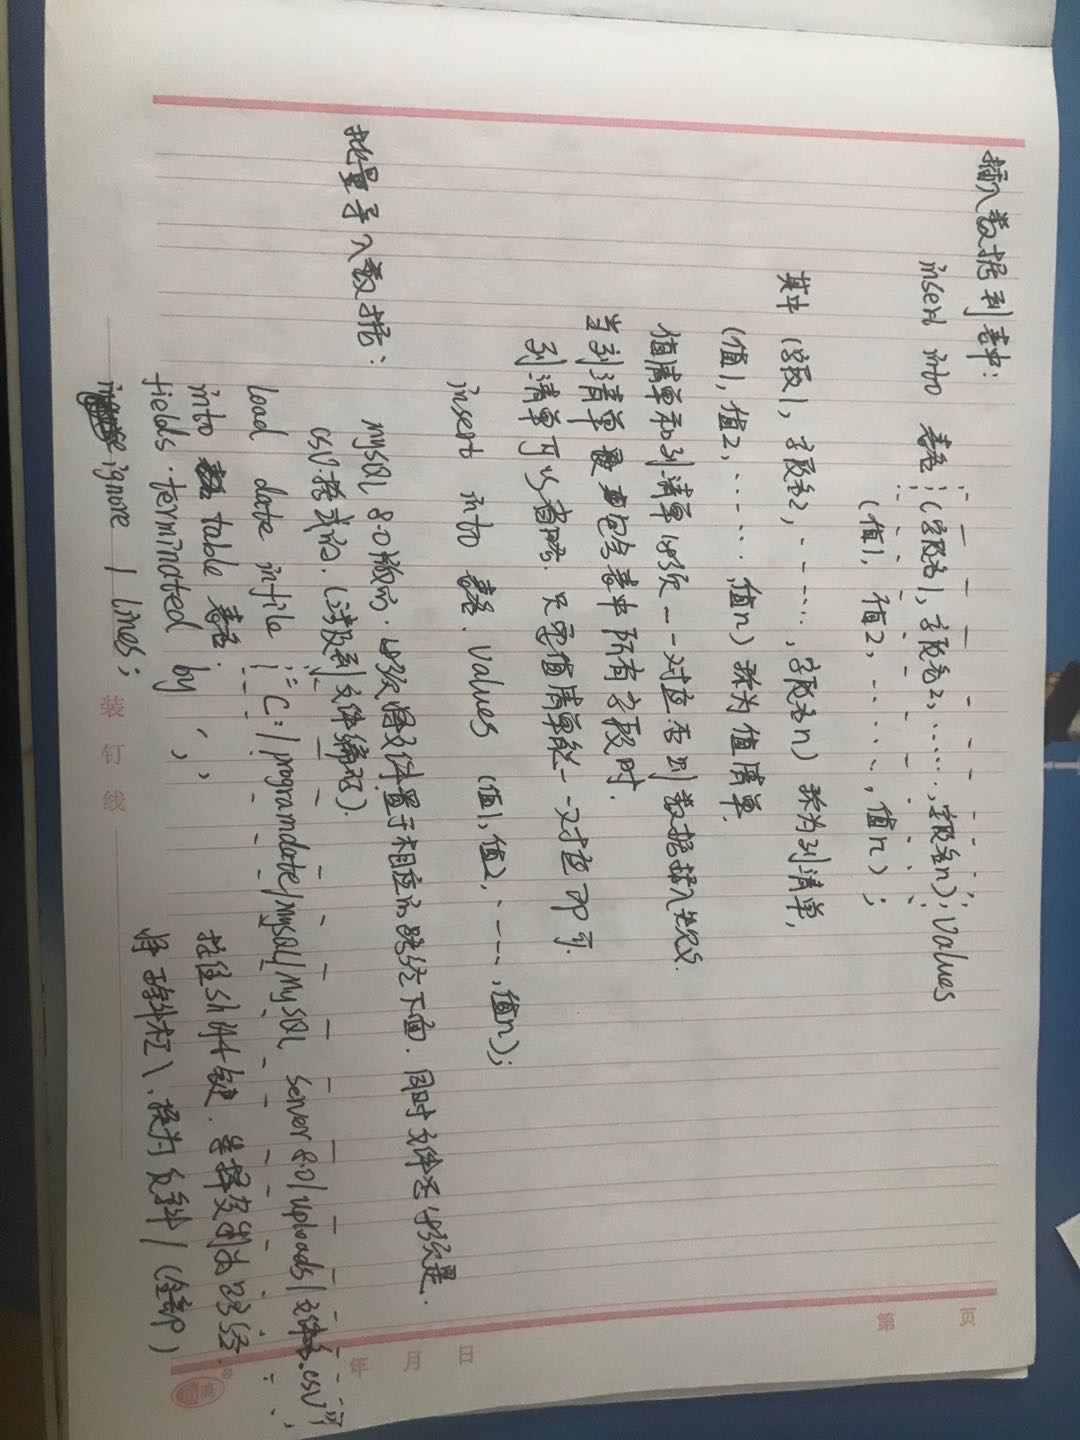 插入数据到表中:
insert into 表名 (字段名1, 字段名2, ……, 字段名n) values
(值1, 值2, ……, 值n);
其中 (字段1, 字段名2, ……, 字段名n) 称为列清单,
(值1, 值2, ……, 值n) 称为值清单.
值清单和列清单必须一一对应.否则数据插入失败.
当列清单包含表中所有字段时.
列清单可以省略. 只要值清单能一一对应即可.
insert into 表名. values (值1, 值2, ……, 值n);
批量导入数据:
MySQL 8.0版的. 必须将文件置于相应的路径下面. 同时文件还必须是.
CSV.格式的. (涉及到文件编码).
load date infile "C:/programdate/MySQL/MySQL server 8.0/uploads/文件名.csv"
into table 表名.
按住shift键. 选择复制为路径.
fields.terminated by ',';
将 斜杠 \、换为反斜 / (全部)
ignore 1 lines;
装 钉 线
第 页
年 月 日